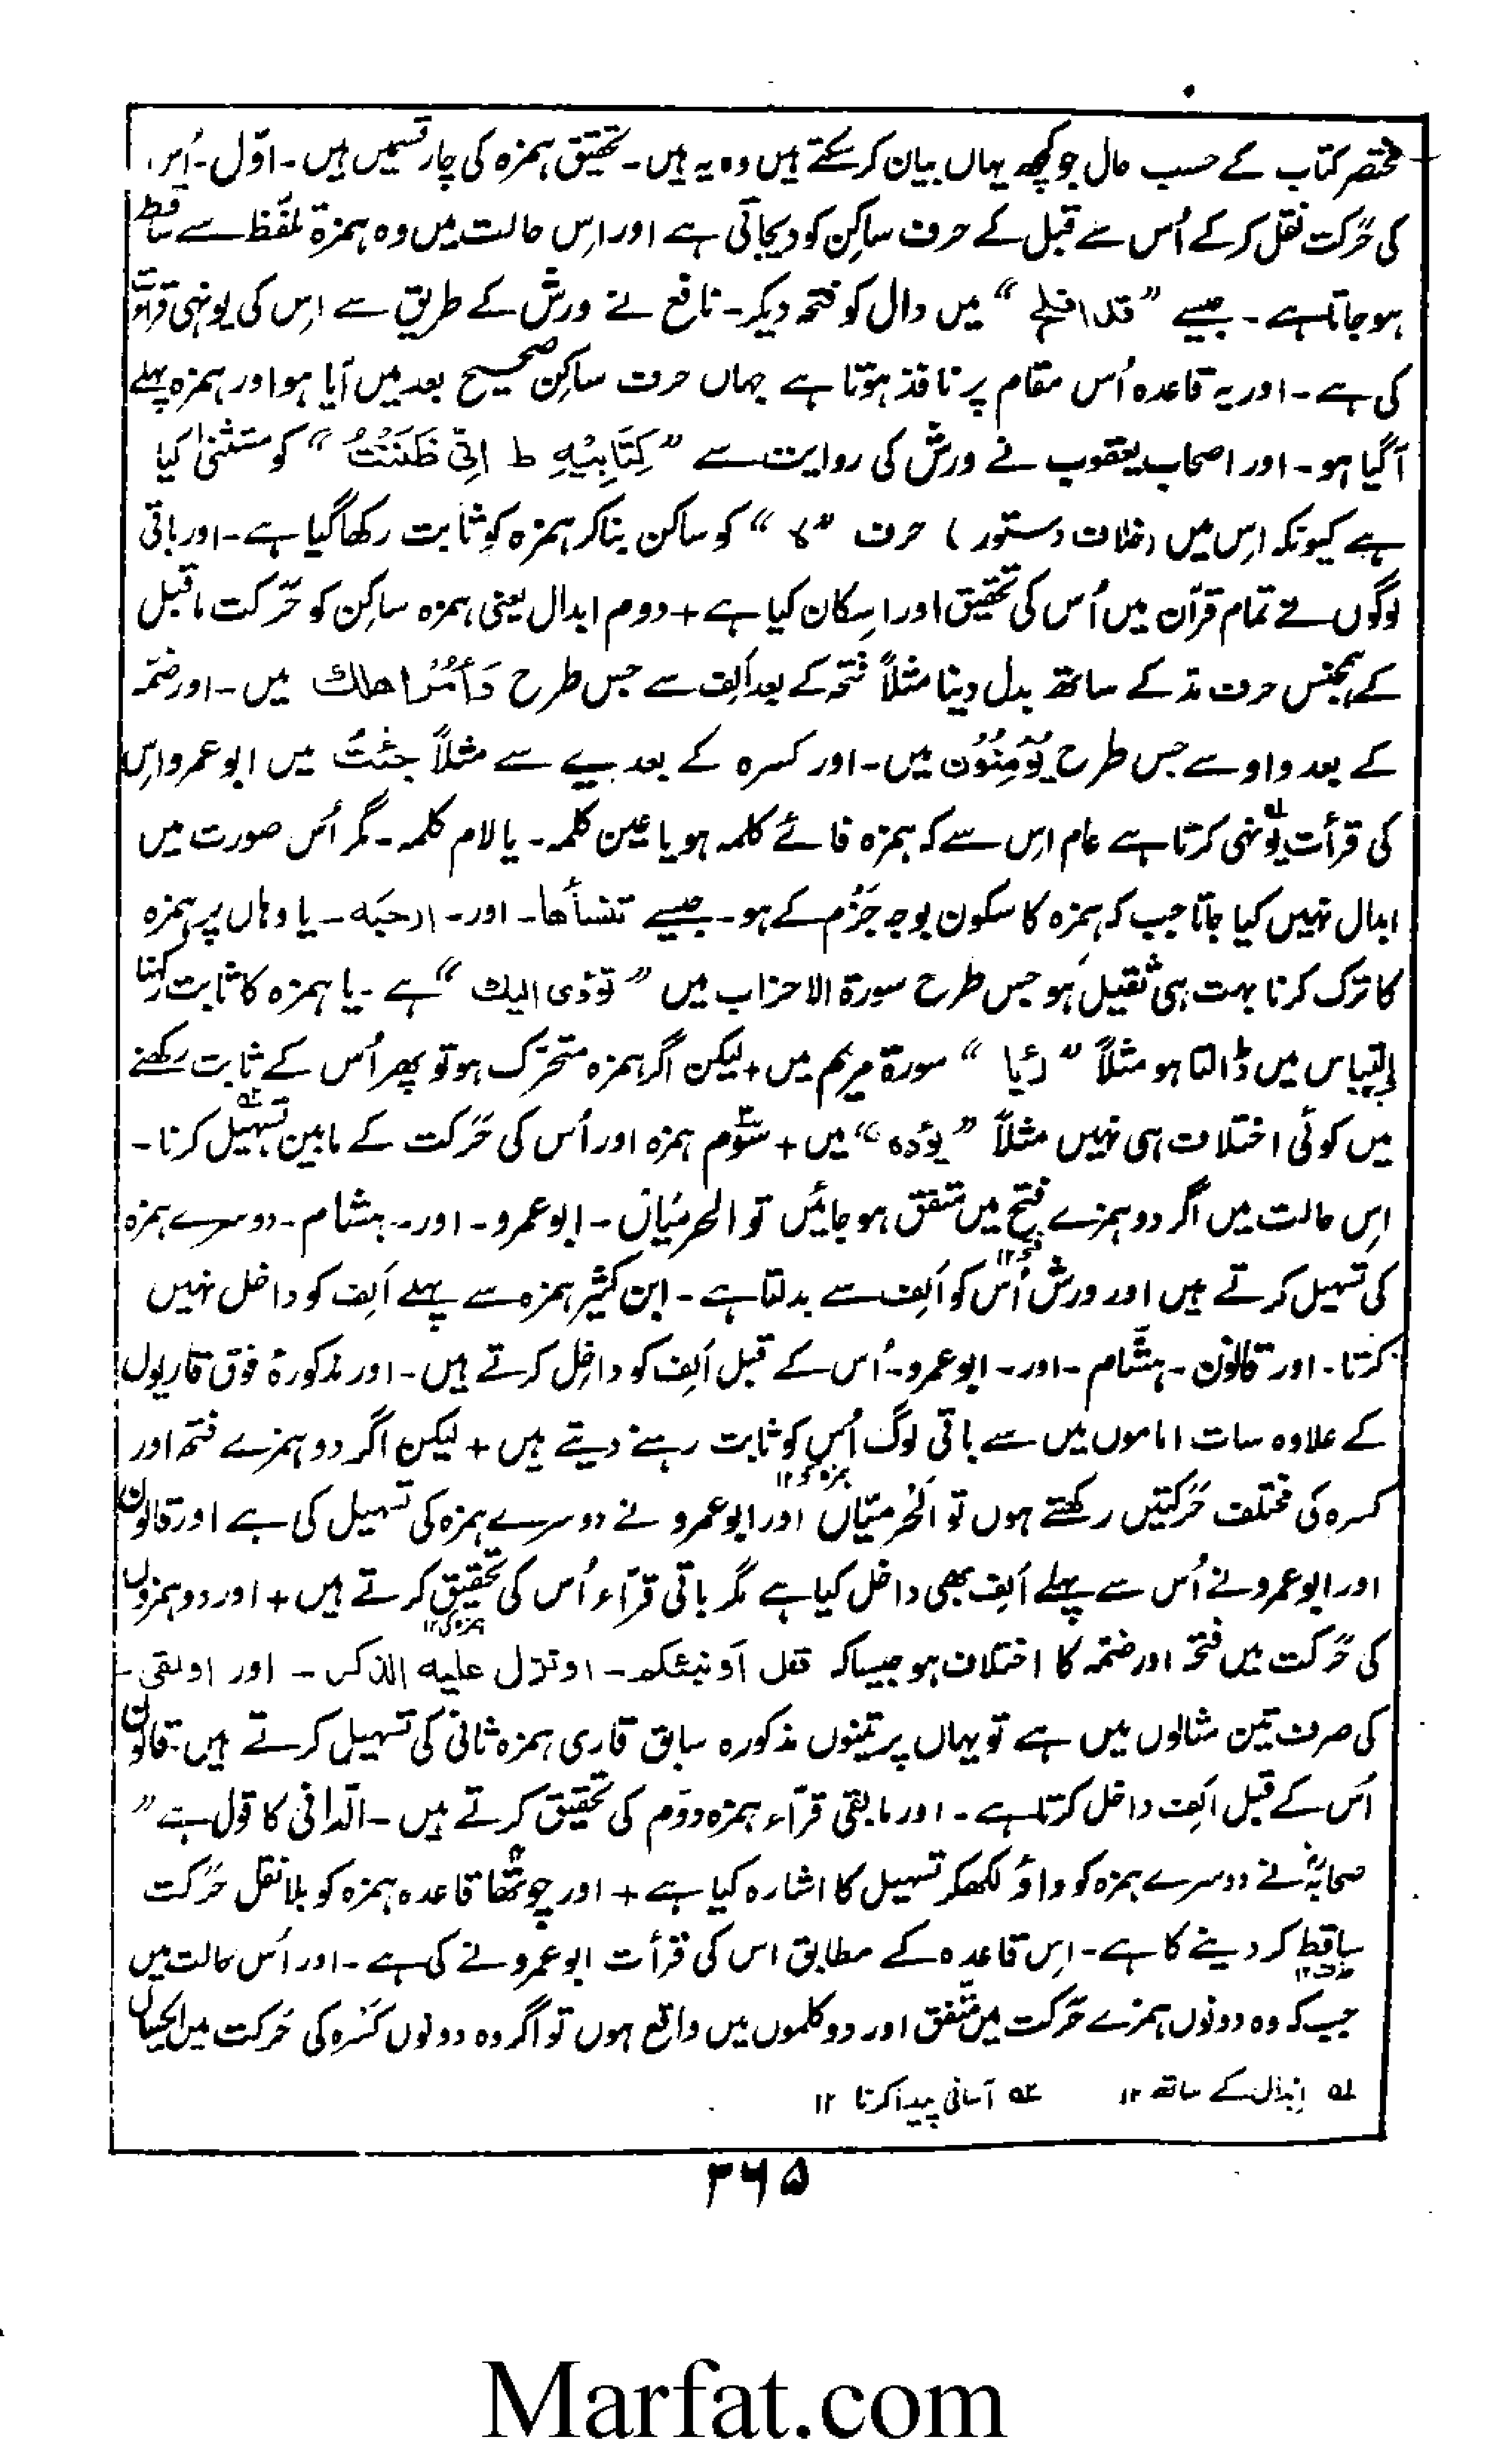 مختصر کتاب کے حسب حال جو کچھ یہاں بیان کر سکتے ہیں وہ یہ ہیں۔ تحقیق ہمزہ کی چار قسمیں ہیں۔ اوّل۔ اُس
کی حَرکت نقل کر کے اُس سے قبل کے حرف ساکِن کو دیجاتی ہے اور اِس حالت میں وہ ہمزۃ تلفّظ سے ساقط
ہو جاتا ہے۔ جیسے ”قد افلح“ میں دال کو فتحہ دیکر۔ نافع نے ورش کے طریق سے اِس کی یونہی قرأت
کی ہے۔ اور یہ قاعدہ اُس مقام پر نافذ ہوتا ہے جہاں حرف ساکِن صحیح بعد میں آیا ہو اور ہمزہ پہلے
آگیا ہو۔ اور اصحاب یعقوب نے ورش کی روایت سے ”کِتَابِیَہْ ط اِنِّی ظَنَنْتُ“ کو مستثنیٰ کیا
ہے کیونکہ اِس میں (خلاف دستور) حرف ”ہ“ کو ساکن بنا کر ہمزہ کو ثابت رکھا گیا ہے۔ اور باقی
لوگوں نے تمام قرآن میں اُس کی تحقیق اور اسکان کیا ہے + دوم ابدال یعنی ہمزہ ساکِن کو حَرکت ماقبل
کے ہمجنس حرف مد کے ساتھ بدل دینا مثلاً فتحہ کے بعد اَلِف سے جس طرح وَأْمُرْ اھلك میں۔ اور ضمّہ
کے بعد واو سے جس طرح یُؤْمِنُوْن میں۔ اور کسرہ کے بعد یے سے مثلاً جِئْتَ میں ابو عمرو اِس
کی قرأت یونہی کرتا ہے عام اِس سے کہ ہمزہ فائے کلمہ ہو یا عین کلمہ۔ یا لام کلمہ۔ مگر اُس صورت میں
ابدال نہیں کیا جاتا جب کہ ہمزہ کا سکون بوجہ جَزم کے ہو۔ جیسے ننسأھا۔ اور۔ ارجئہ۔ یا وہاں پر ہمزہ
کا ترک کرنا بہت ہی ثقیل ہو جس طرح سورۃ الاحزاب میں ”تؤذی الیك“ ہے۔ یا ہمزہ کا ثابت رکھنا
اِلتباس میں ڈالتا ہو مثلاً ”رئیا“ سورۃ مریم میں + لیکن اگر ہمزہ متحرّک ہو تو پھر اُس کے ثابت رکھنے
میں کوئی اختلاف ہی نہیں مثلاً ”یؤدہ“ میں + سَوُم ہمزہ اور اُس کی حَرکت کے مابین تسہیل کرنا۔
اِس حالت میں اگر دو ہمزے فتح میں متفق ہو جائیں تو الحرمیّان۔ ابو عمرو۔ اور۔ ہشام۔ دوسرے ہمزہ
کی تسہیل کرتے ہیں اور ورش اُس کو اَلِف سے بدلتا ہے۔ ابن کثیر ہمزہ سے پہلے اَلِف کو داخل نہیں
کرتا۔ اور قالون۔ ہشّام۔ اور۔ ابو عمرو۔ اُس کے قبل اَلِف کو داخِل کرتے ہیں۔ اور مذکورۃ فوق قاریوں
کے علاوہ سات اماموں میں سے باقی لوگ اُس کو ثابت رہنے دیتے ہیں + لیکن اگر دو ہمزے فتحہ اور
کسرہ کی مختلف حَرکتیں رکھتے ہوں تو اَلحرمیّاں اور ابو عمرو نے دوسرے ہمزہ کی تسہیل کی ہے اور قالون
اور ابو عمرو نے اُس سے پہلے اَلِف بھی داخل کیا ہے مگر باقی قرّاء اُس کی تحقیق کرتے ہیں + اور دو ہمزوں
کی حَرکت میں فتحہ اور ضمّہ کا اختلاف ہو جیسا کہ قل أونبئکم۔ اونزل علیہ الذکر۔ اور اولقی۔
کی صرف تین مثالوں میں ہے تو یہاں پر تینوں مذکورہ سابق قاری ہمزہ ثانی کی تسہیل کرتے ہیں۔ قالون
اُس کے قبل اَلِف داخل کرتا ہے۔ اور مابقی قرّاء ہمزہ دوَّم کی تحقیق کرتے ہیں۔ الدّانی کا قول ہے ”
صحابہؓ نے دوسرے ہمزہ کو واؤ لکھکر تسہیل کا اشارہ کیا ہے + اور چوتھا قاعدہ ہمزہ کو بلا نقل حَرکت
ساقِط کر دینے کا ہے۔ اِس قاعدہ کے مطابق اس کی قرأت ابو عمرو نے کی ہے۔ اور اُس حالت میں
جب کہ وہ دونوں ہمزے حَرکت میں متّفق اور دو کلموں میں واقع ہوں تو اگر وہ دونوں کَسرہ کی حَرکت میں یکساں
لہ اِبدال کے ساتھ ۱۲ ۲ہ آسانی پیدا کرنا ۱۲
۳۶۵
Marfat.com